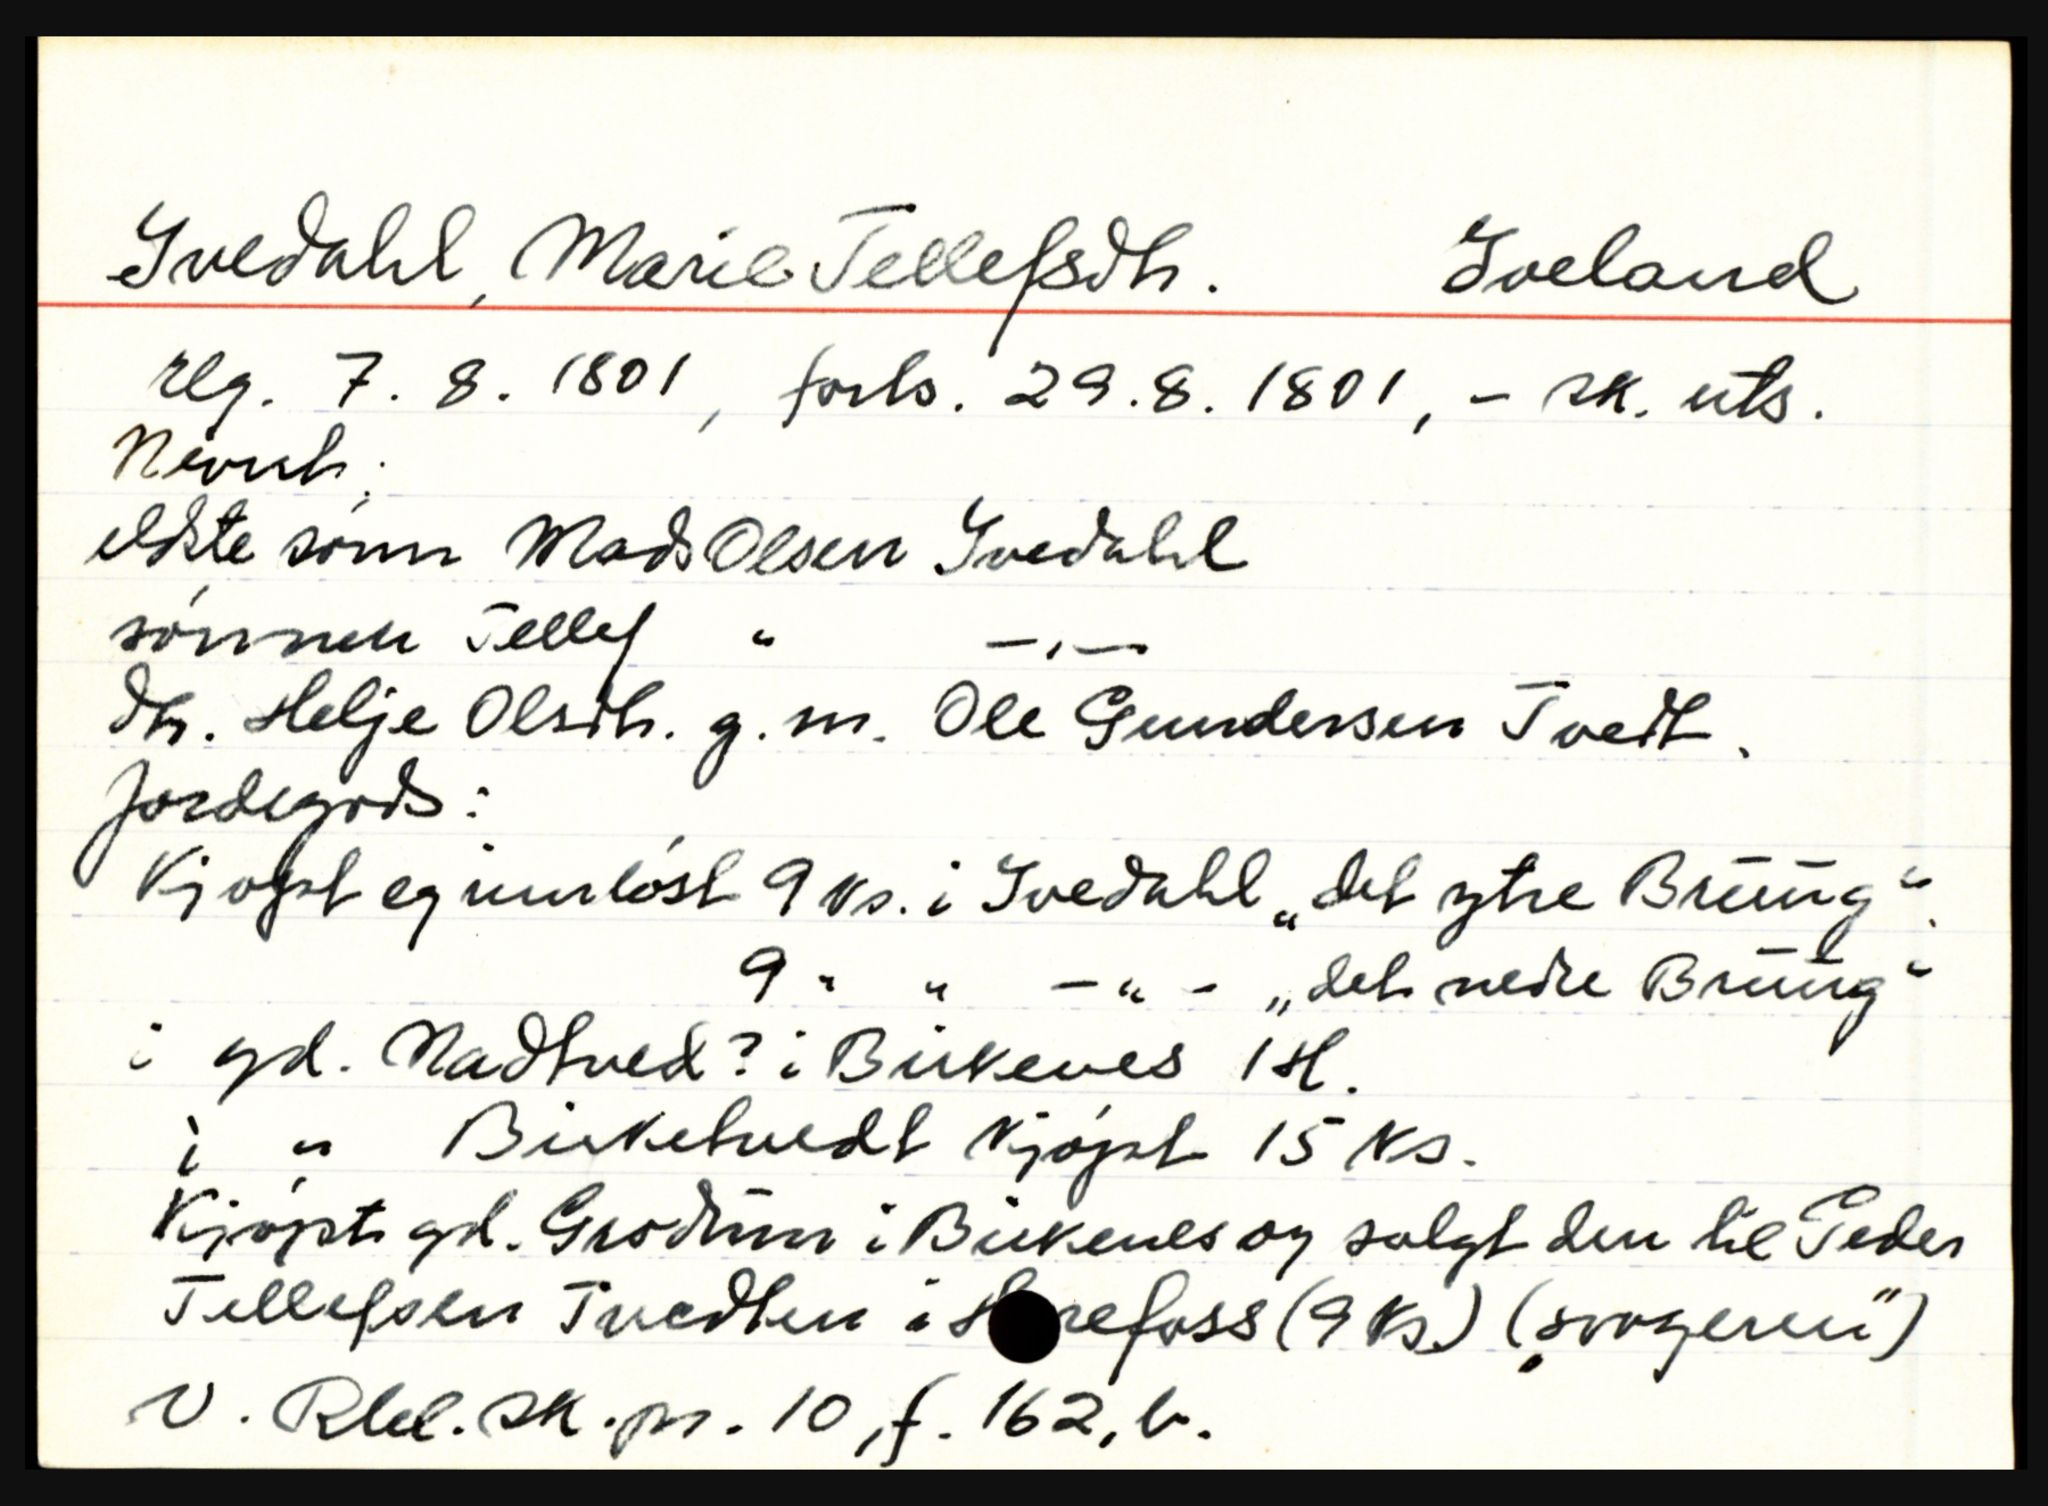 Ivedahl, Marie Tellefsdtr. Iveland
reg. 7. 8. 1801, forts. 29.8. 1801, - sk. uts.
Nevnt:
eldste sønn Mads Olsen Ivedahl
sønnen Tellef " -"-
dtr. Helje Olsdtr. g. m. Ole Gundersen Tvedt.
Jordegods:
Kjøpt og innløst 9 ks. i Ivedahl „det ytre Brüüg".
9 " " -"- „det nedre Brüüg"
i gd. Nadtved? i Birkenes 1 H.
i " Birketvedt kjøpt 15 ks.
Kjøpt gd. Grodüm i Birkenes og solgt den til Peder
Tellefsen Tvedten i H refoss (9 ks.) („svogeren")
V. Rbl. sk. pr. 10, f. 162, b.